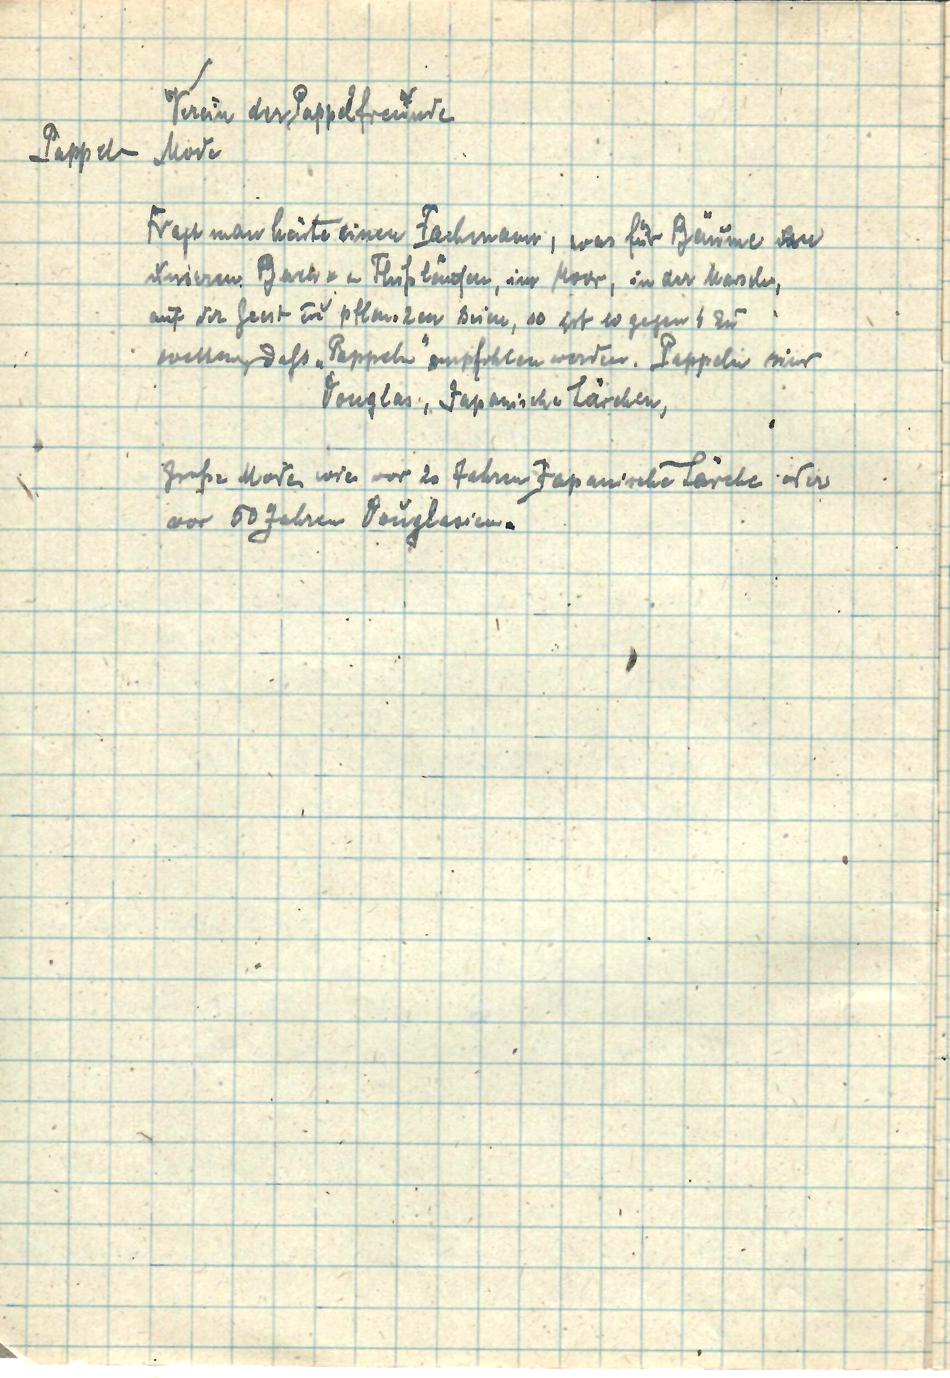 Verein der Pappelfreunde
Pappeln Mode
Fragt man heute einen Fachmann, was für Bäume an
unseren Bach u Flußläufen, im Moor, in der Marsch,
auf der Geest zu pflanzen seien, so ist 10 gegen 1 zu
wetten, daß „Pappeln" empfohlen werden. Pappeln sind
Douglas, Japanische Lärchen,
große Mode, wie vor 20 Jahren Japanische Lärche oder
vor 50 Jahren Douglasien.